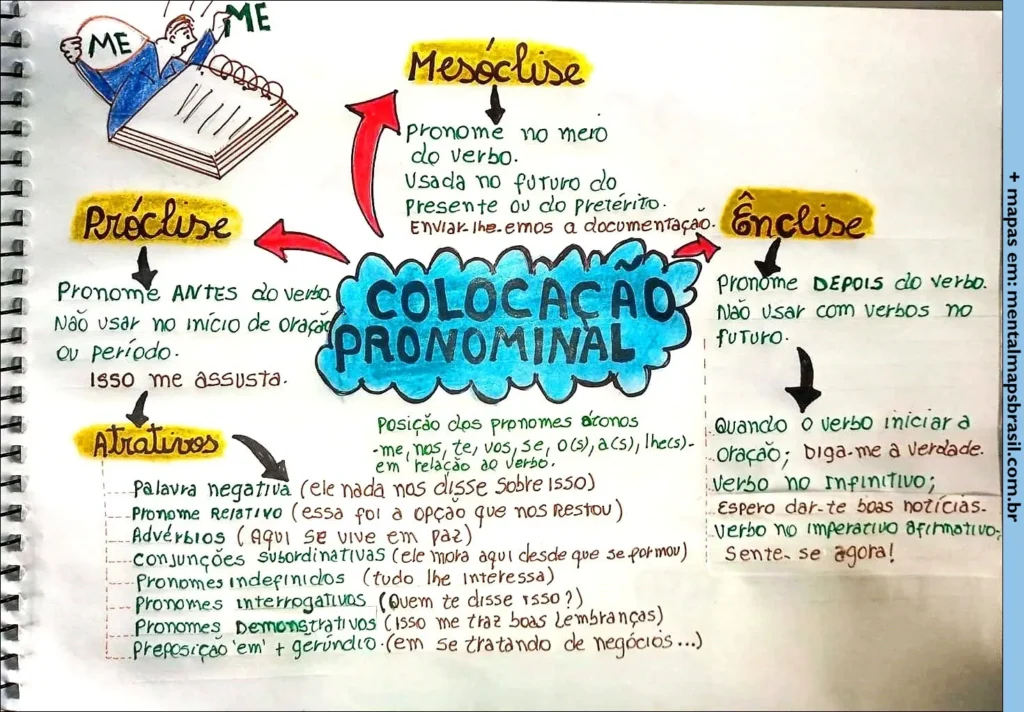 ME
ME
Mesóclise
Pronome no meio
do verbo.
Usada no futuro do
Presente ou do Pretérito.
Enviar-lhe-emos a documentação.
Próclise
Pronome ANTES do verbo.
Não usar no início de oração
ou período.
Isso me assusta.
Ênclise
Pronome DEPOIS do verbo.
Não usar com verbos no
futuro.
COLOCAÇÃO
PRONOMINAL
Posição dos pronomes átonos
-me, nos, te, vos, se, o(s), a(s), lhe(s)-
em relação ao verbo.
Atrativos
Palavra negativa (ele nada nos disse sobre isso)
Pronome Relativo (essa foi a opção que nos restou)
Advérbios (Aqui se vive em paz)
Conjunções subordinativas (ele mora aqui desde que se formou)
Pronomes indefinidos (tudo lhe interessa)
Pronomes interrogativos (Quem te disse isso?)
Pronomes Demonstrativos (Isso me traz boas lembranças)
Preposição 'em' + gerúndio. (em se tratando de negócios...)
Quando o verbo iniciar a
oração; Diga-me a verdade.
Verbo no Infinitivo;
Espero dar-te boas notícias.
Verbo no imperativo afirmativo;
Sente-se agora!
+ mapas em: mentalmapsbrasil.com.br